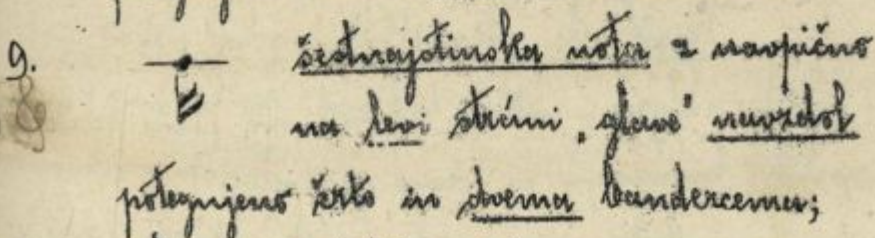 9. šestnajstinska nota z navpično
na levi strani „glave" navzdol
potegnjeno črto in dvema bandercema;